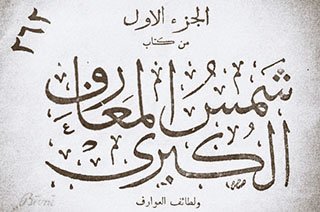 الجزء الاول
من كتاب
٢٦٢
شمس المعارف
الكبرى
ولطائف العوارف